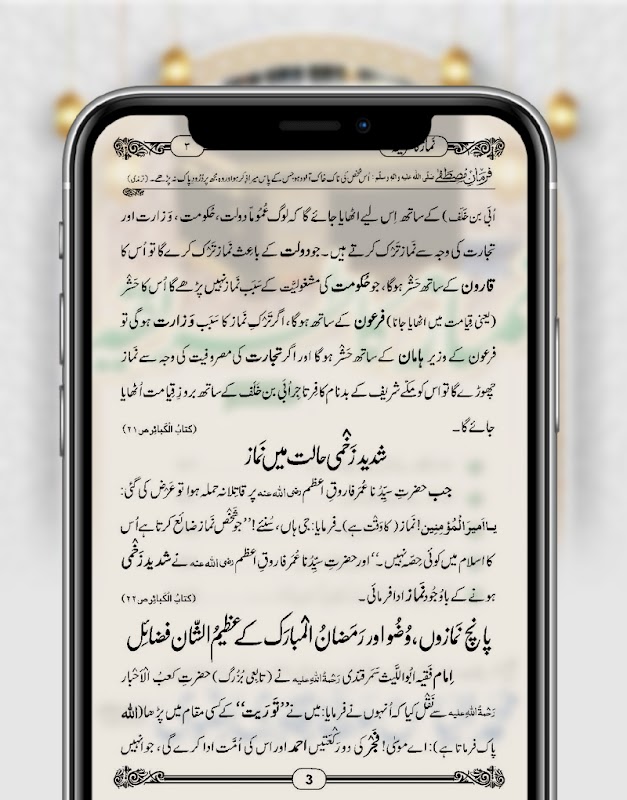 ۳
نماز کا طریقہ
فرمانِ مصطفےٰ صلی اللہ علیہ والہ وسلم: اُس شخص کی ناک خاک آلود ہو جس کے پاس میرا ذِکر ہو اور وہ مجھ پر دُرُودِ پاک نہ پڑھے۔ (ترمذی)
اُبَی بن خَلَف) کے ساتھ اِس لیے اٹھایا جائے گا کہ لوگ عُمُوماً دولت، حُکومت، وَزارت اور
تجارت کی وجہ سے نَماز تَرْک کرتے ہیں۔ جو دولت کے باعث نَماز تَرْک کرے گا تو اُس کا
قارون کے ساتھ حَشْر ہوگا، جو حُکومت کی مشغولیَّت کے سبَب نَماز نہیں پڑھے گا اُس کا حَشْر
(یعنی قِیامت میں اٹھایا جانا) فرعون کے ساتھ ہوگا، اگر تَرْکِ نَماز کا سبَب وَزارت ہوگی تو
فرعون کے وزیر ہامان کے ساتھ حَشْر ہوگا اور اگر تجارت کی مصروفیت کی وجہ سے نَماز
چھوڑے گا تو اس کو مکّے شریف کے بدنام کافِر تاجِر اُبَی بن خَلَف کے ساتھ بروزِ قِیامت اُٹھایا
جائے گا۔ (کتابُ الْکبائِر ص ۲۱)
شدید زَخْمی حالت میں نَماز
جب حضرتِ سیِّدُنا عُمَر فاروقِ اعظم رضی اللہ عنہ پر قاتِلانہ حملہ ہوا تو عَرض کی گئی:
یا اَمیرَ الْمُؤْمِنِین! نَماز (کا وقت ہے)۔ فرمایا: جی ہاں، سُنئے! ’’جو شَخْص نَماز ضائع کرتا ہے اُس
کا اسلام میں کوئی حصّہ نہیں۔‘‘ اور حضرتِ سیِّدُنا عُمَر فاروقِ اعظم رضی اللہ عنہ نے شدید زَخْمی
ہونے کے باوُجُود نَماز ادا فرمائی۔ (کتابُ الْکبائِر ص ۲۲)
پانچ نمازوں، وُضُو اور رَمَضانُ الْمُبارَک کے عظیمُ الشّان فضائل
اِمام فَقیہ ابُواللَّیث سَمَر قندی رَحْمَۃُ اللہِ علیہ نے (تابِعی بُزُرگ) حضرتِ کعبُ الْاَحبار
رَحْمَۃُ اللہِ علیہ سے نَقْل کیا کہ اُنہوں نے فرمایا: میں نے ’’تَورَیت‘‘ کے کسی مقام میں پڑھا (اللہ
پاک فرماتا ہے): اے موسیٰ! فَجْر کی دو رَکْعَتیں احمد اور اس کی اُمَّت ادا کرے گی، جو اُنہیں
3